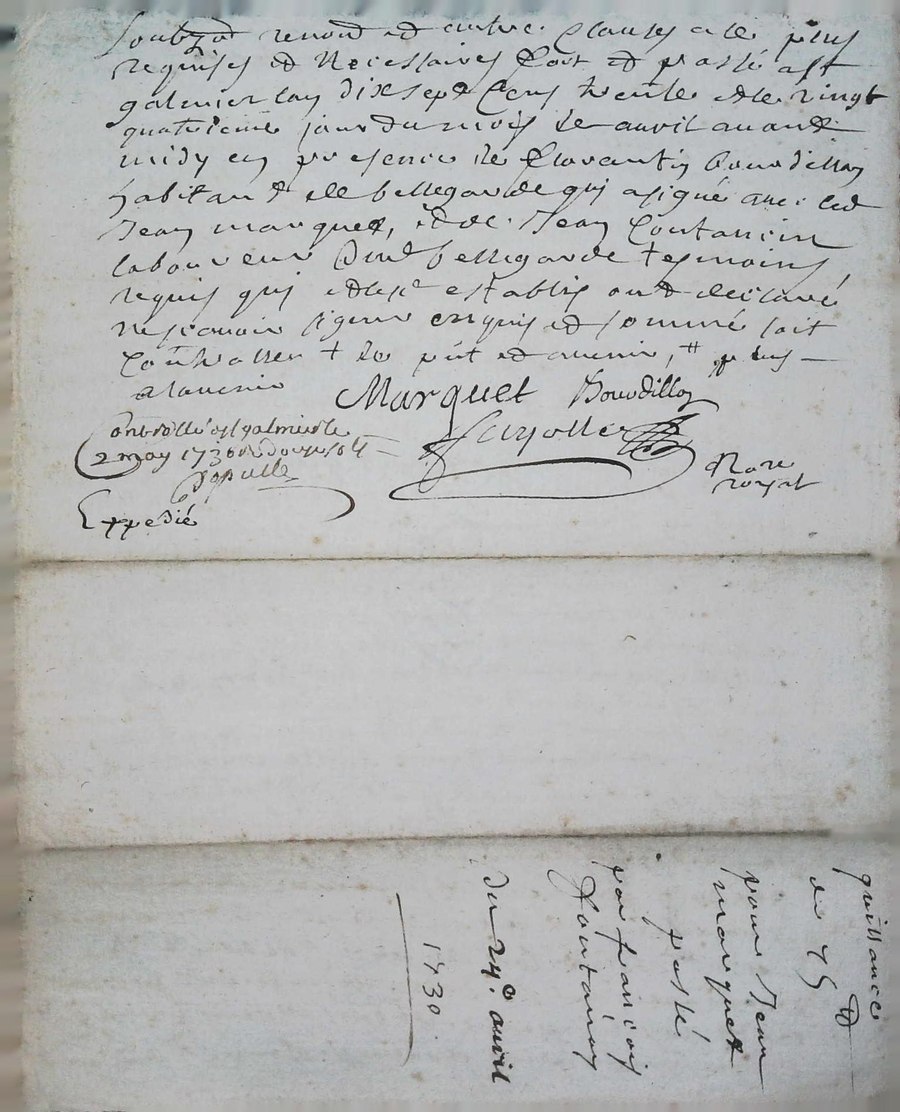 renond et autres clauses a le plus
requises et Necessaires fait et passé a st
galmier lan dix sept cens trente et le vingt
quatrieme jour du mois de avril avant
midy en presence de florantin bourdillon
habitant de bellegarde qui a signé avec led
Jean marquet, et de Jean
laboureur dud bellegarde tesmoins
requis qui establis ont declaré
ne scavoir signer enquis et sommé soit
+ plus
a lavenir
Marquet Bourdillon
Controllé a st galmier le
2 may 1730 Rx douze sols
fayolle
No.re
royal
Expedié
quittance
de 75 ₶
pour Jean
marquet
passé
par françois
du 24e avril
1730